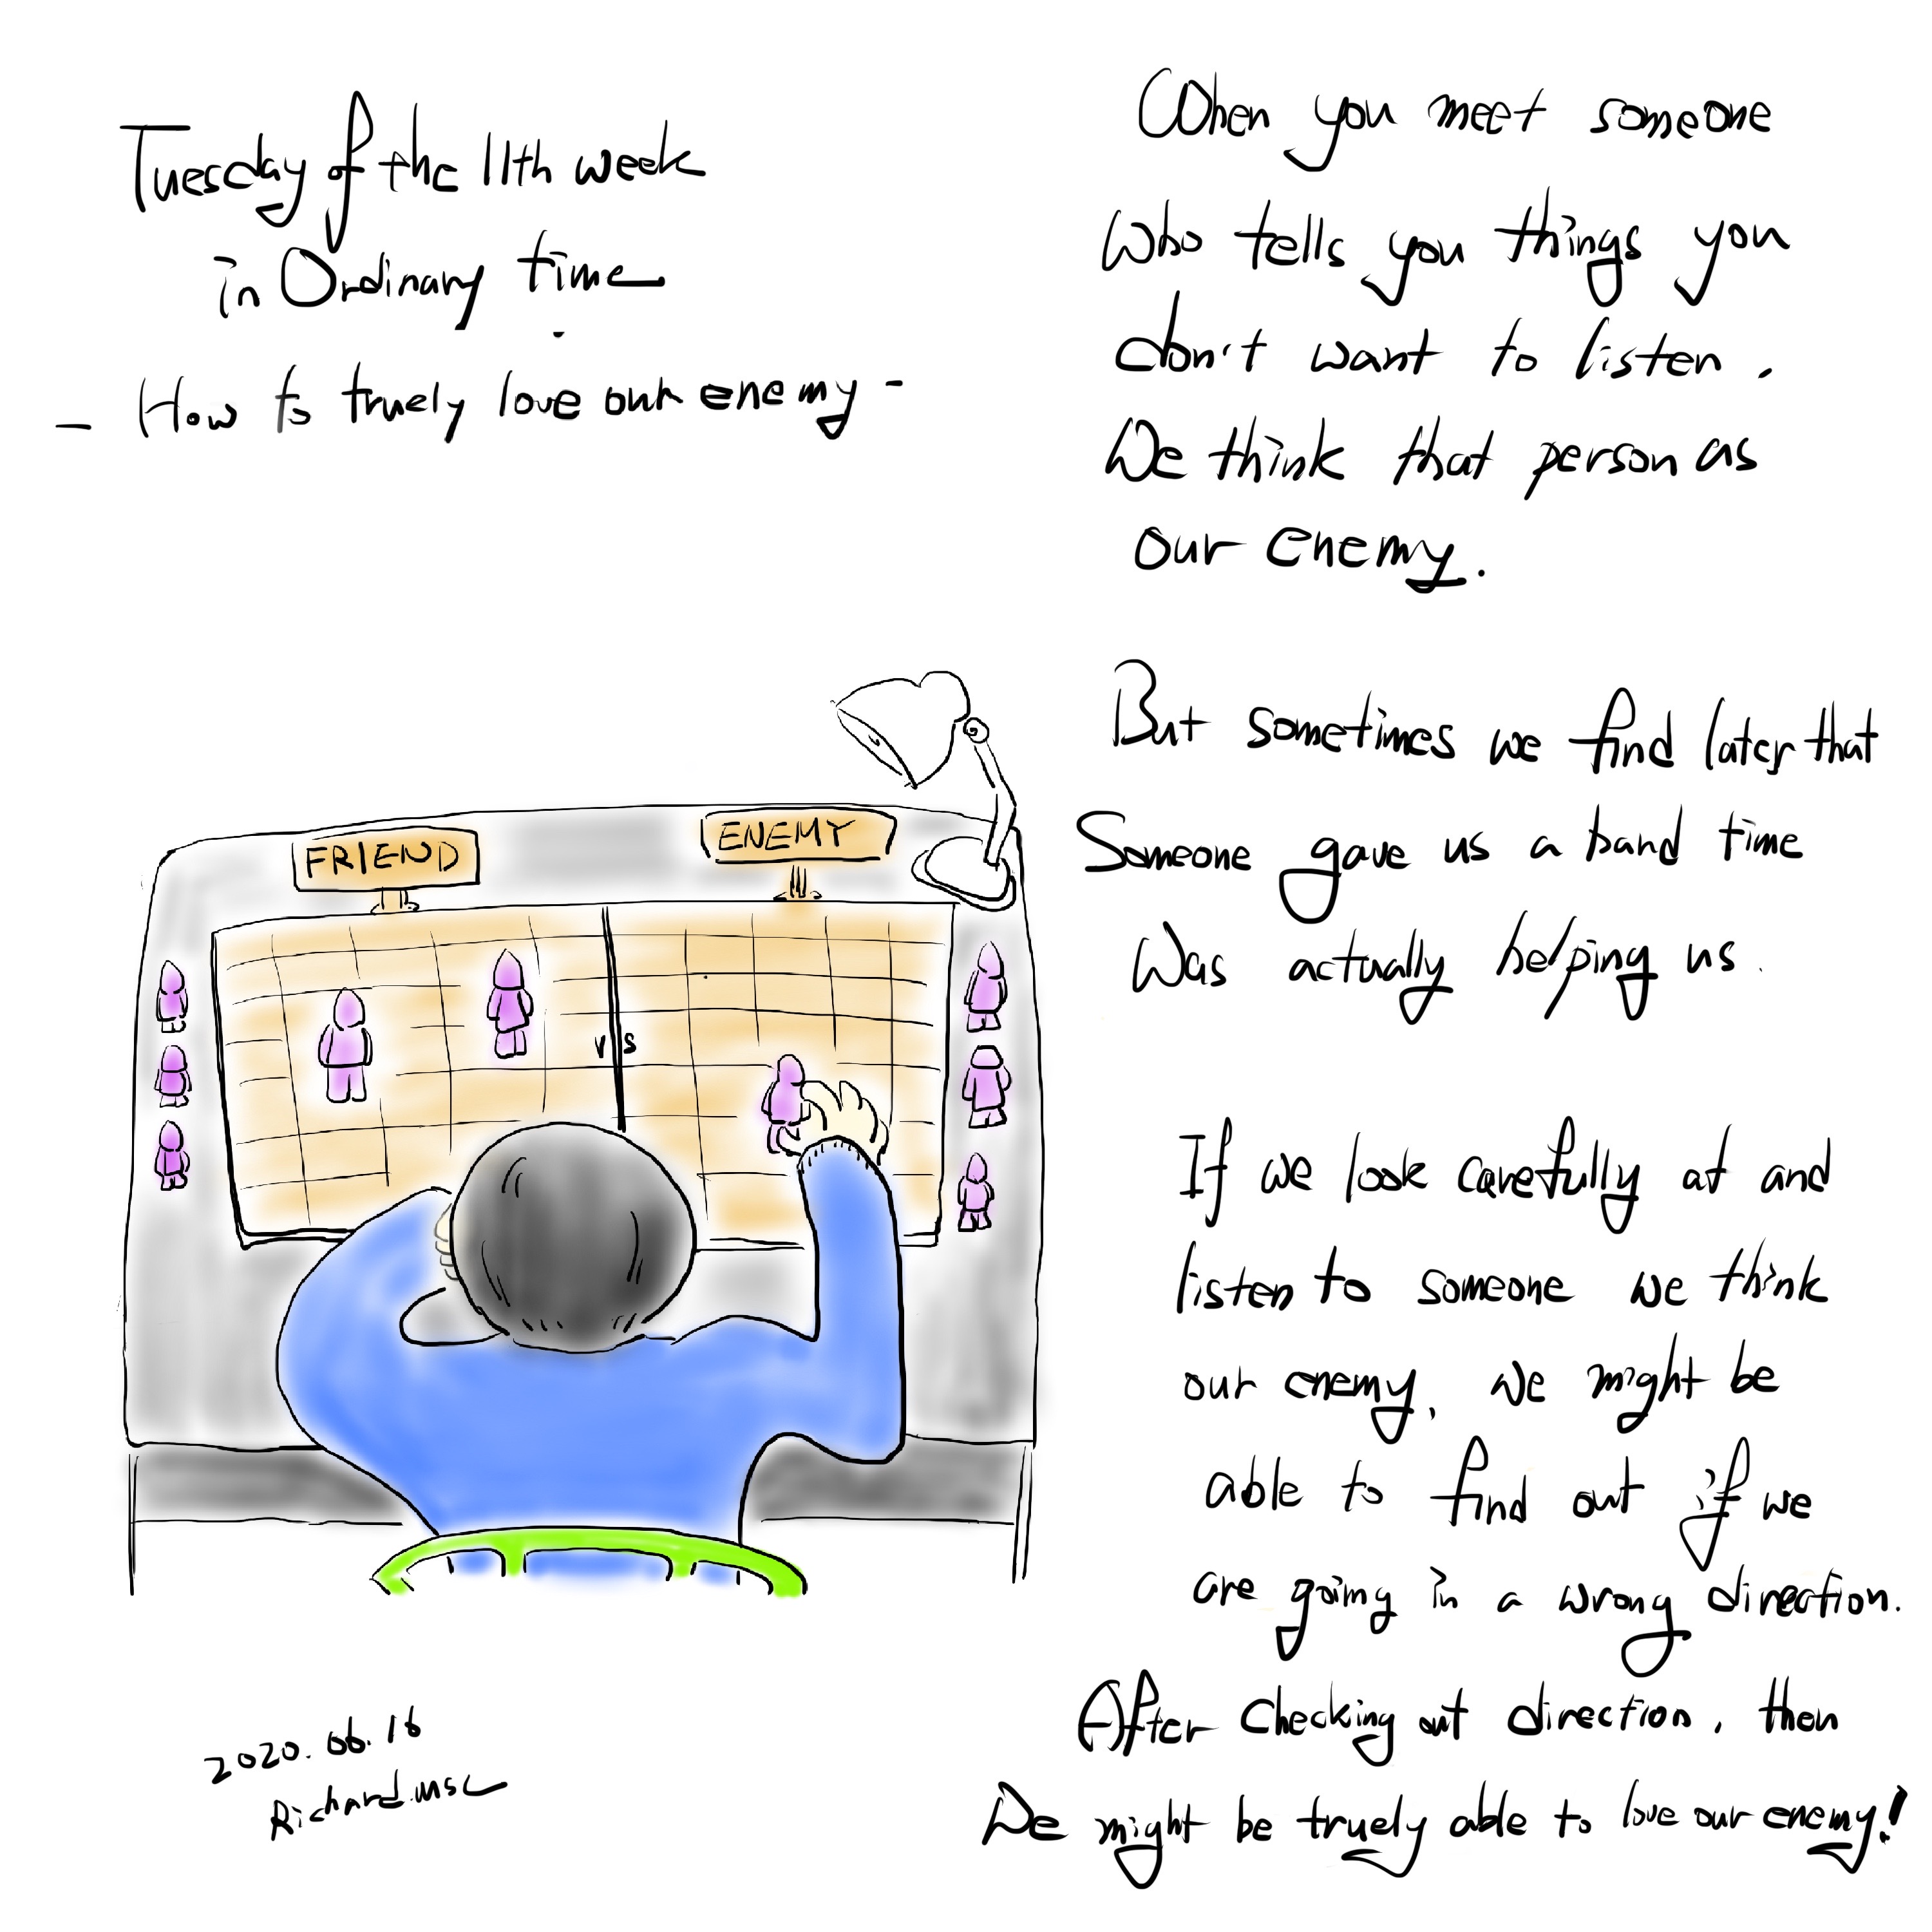 Tuesday of the 11th week
in Ordinary time
- How to truely love our enemy -
When you meet someone
who tells you things you
don't want to listen,
We think that person as
our enemy.
But sometimes we find later that
Someone gave us a hard time
Was actually helping us.
If we look carefully at and
listen to someone we think
our enemy, we might be
able to find out if we
are going in a wrong direction.
After checking out direction, then
We might be truely able to love our enemy!
FRIEND
ENEMY
VS
2020.06.16
Richard.msc